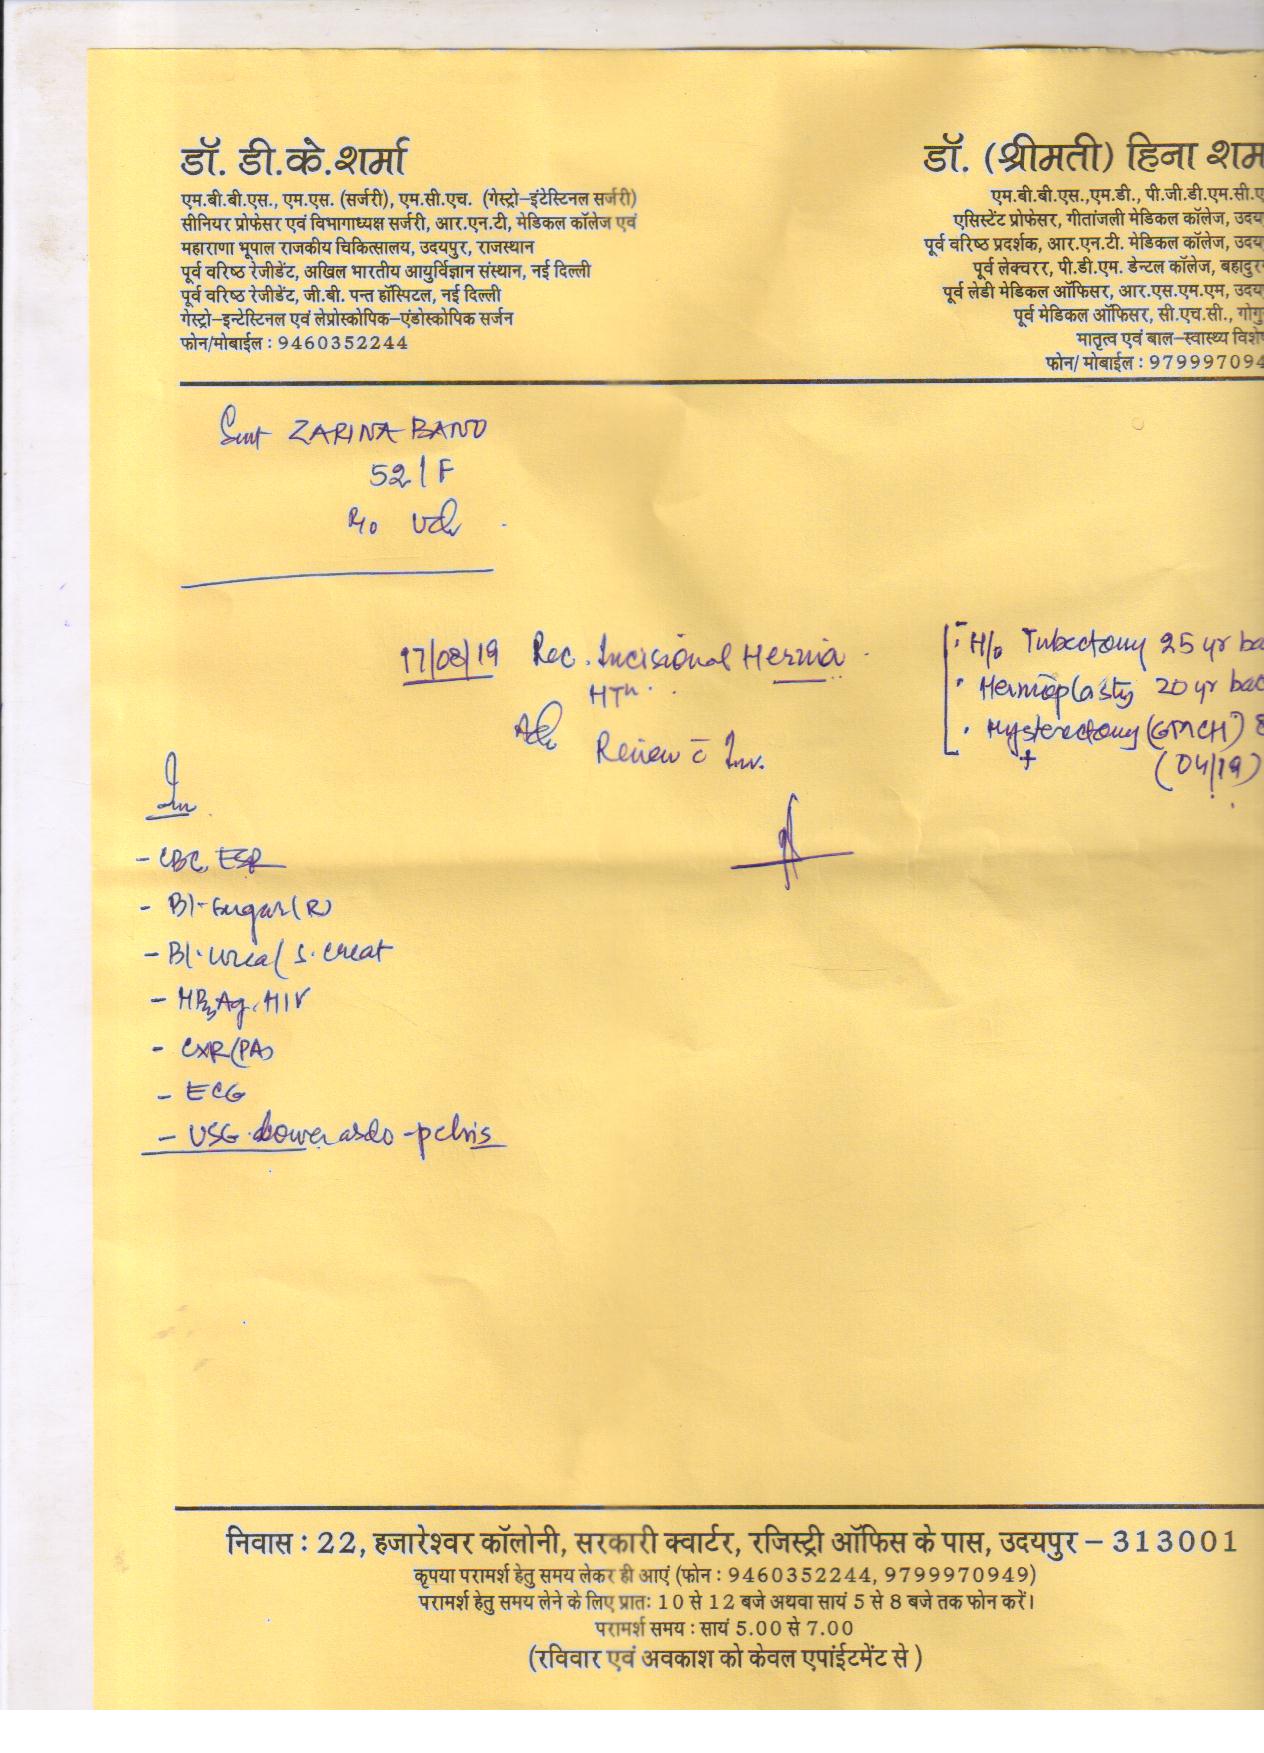 डॉ. डी.के.शर्मा
एम.बी.बी.एस., एम.एस. (सर्जरी), एम.सी.एच. (गेस्ट्रो-इंटेस्टिनल सर्जरी)
सीनियर प्रोफेसर एवं विभागाध्यक्ष सर्जरी, आर.एन.टी, मेडिकल कॉलेज एवं
महाराणा भूपाल राजकीय चिकित्सालय, उदयपुर, राजस्थान
पूर्व वरिष्ठ रेजीडेंट, अखिल भारतीय आयुर्विज्ञान संस्थान, नई दिल्ली
पूर्व वरिष्ठ रेजीडेंट, जी.बी. पन्त हॉस्पिटल, नई दिल्ली
गेस्ट्रो-इन्टेस्टिनल एवं लेप्रोस्कोपिक-एंडोस्कोपिक सर्जन
फोन/मोबाईल : 9460352244
डॉ. (श्रीमती) हिना शर्म
एम.बी.बी.एस.,एम.डी., पी.जी.डी.एम.सी.ए
एसिस्टेंट प्रोफेसर, गीतांजली मेडिकल कॉलेज, उदय
पूर्व वरिष्ठ प्रदर्शक, आर.एन.टी. मेडिकल कॉलेज, उदय
पूर्व लेक्चरर, पी.डी.एम. डेन्टल कॉलेज, बहादुर
पूर्व लेडी मेडिकल ऑफिसर, आर.एस.एम.एम, उदय
पूर्व मेडिकल ऑफिसर, सी.एच.सी., गोगु
मातृत्व एवं बाल-स्वास्थ्य विशे
फोन/ मोबाईल : 979997094
Smt ZARINA BANO
52/F
R/o Udr
17/08/19 Rec. Incisional Hernia
HTn.
Adv Review c̄ Inv.
H/o Tubectomy 25 yr ba
Hernioplasty 20 yr bac
Hysterectomy (GMCH)
+ (04/19)
Inv
- CBC, ESR
- Bl. Sugar (R)
- Bl. Urea / S. creat
- HBsAg, HIV
- CXR (PA)
- ECG
- USG. lower abdo - pelvis
निवास : 22, हजारेश्वर कॉलोनी, सरकारी क्वार्टर, रजिस्ट्री ऑफिस के पास, उदयपुर – 313001
कृपया परामर्श हेतु समय लेकर ही आएं (फोन : 9460352244, 9799970949)
परामर्श हेतु समय लेने के लिए प्रातः 10 से 12 बजे अथवा सायं 5 से 8 बजे तक फोन करें।
परामर्श समय : सायं 5.00 से 7.00
(रविवार एवं अवकाश को केवल एपांईटमेंट से )